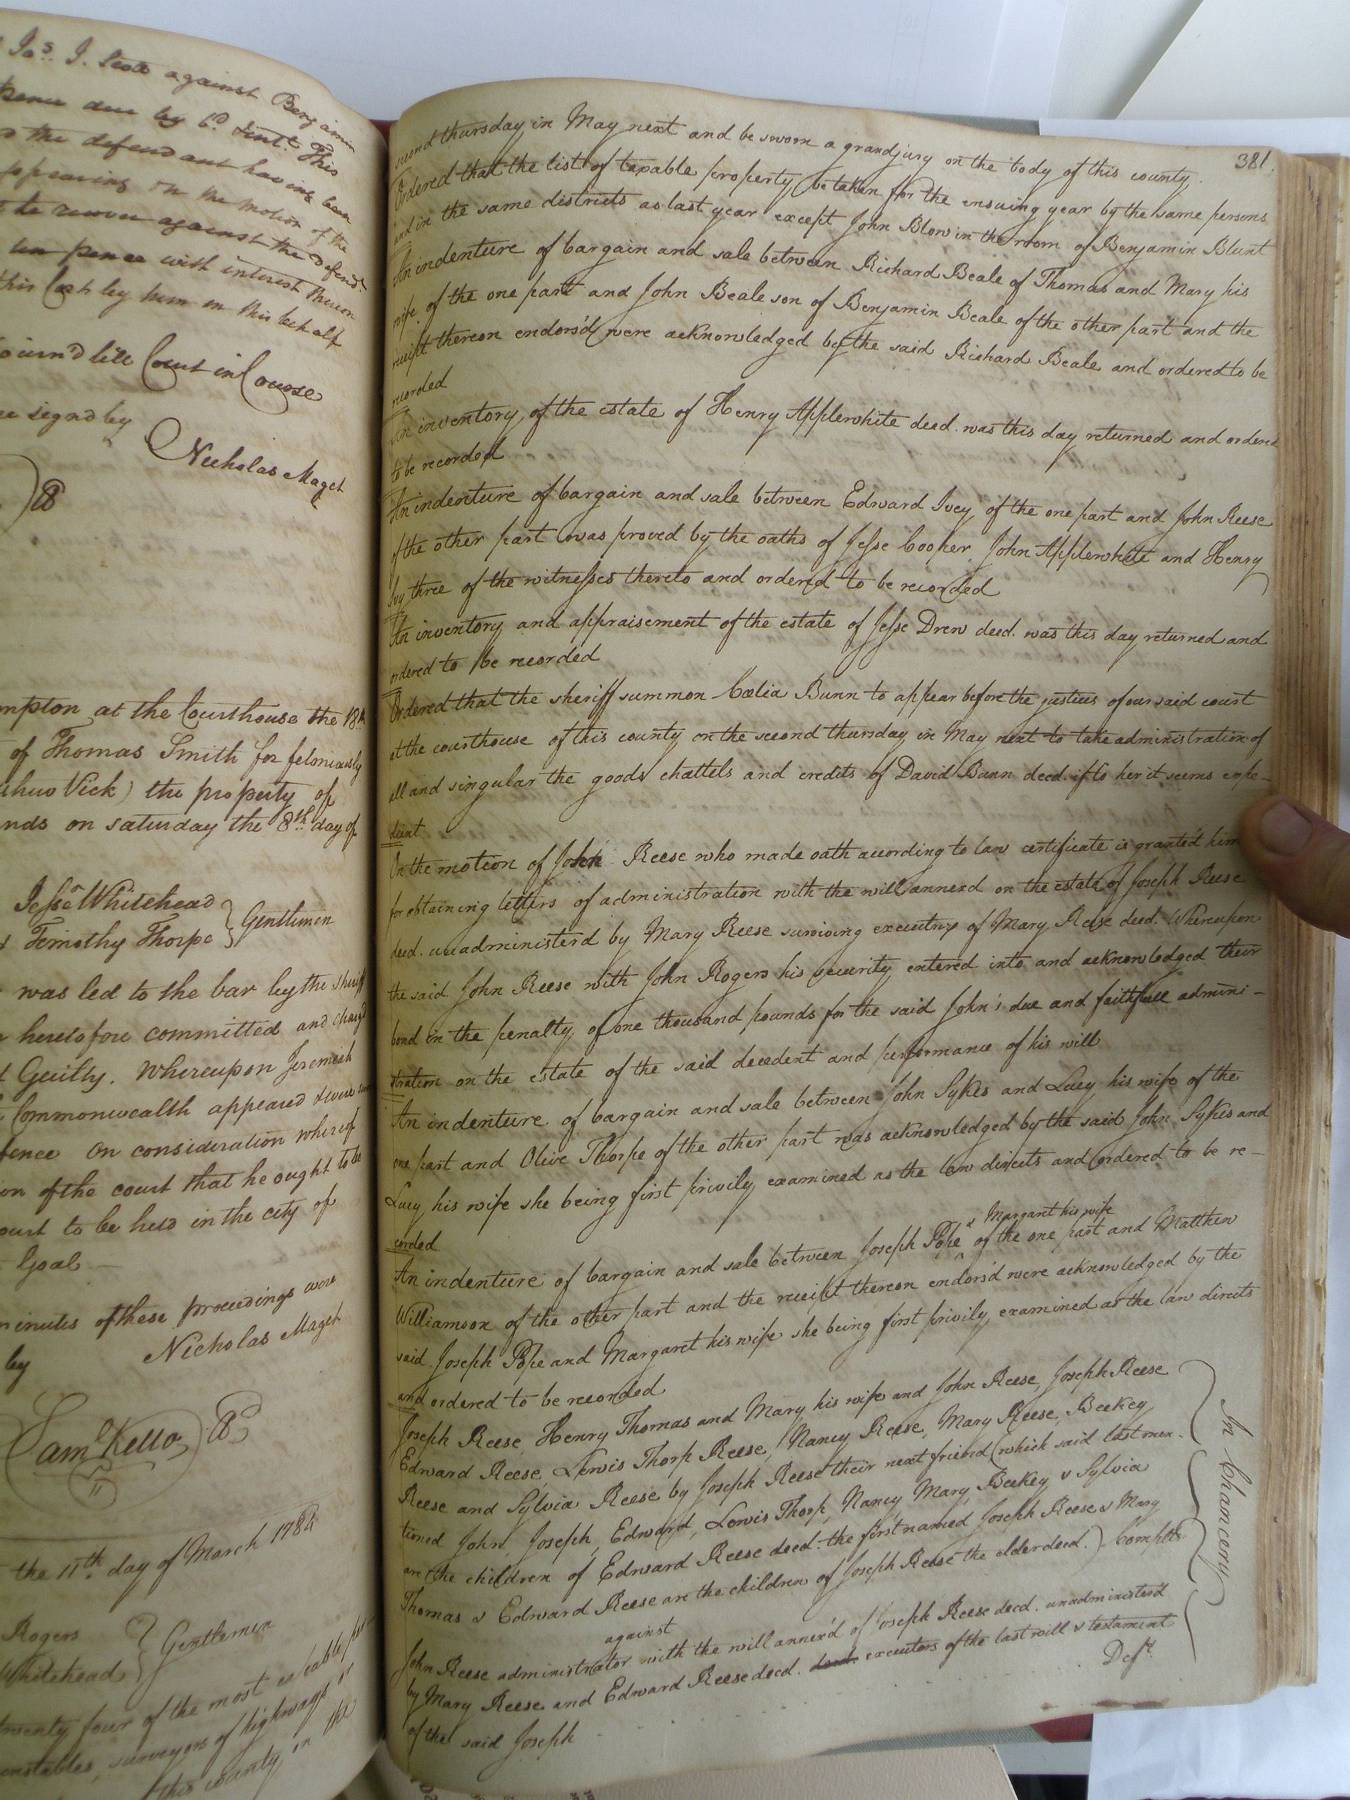 Jas. J. Scott against Benjamin
pence due by Ct. Tent. This
the defendant having been
appearing on the motion of the
to recover against the Defendt.
ten pence with interest thereon
this Cost by him in this behalf
journ'd till Court in Course
re signd by
Nicholas Maget
mpton at the Courthouse the 18th
of Thomas Smith for feloniously
thur Vick) the property of
nds on saturday the 8th day of
Jesse Whitehead
Timothy Thorpe
Gentlemen
was led to the bar by the Sheriff
heretofore committed and charg'd
t Guilty. Whereupon Jeremiah
Commonwealth appeared & were
fence On consideration whereof
on of the court that he ought to be
ourt to be held in the city of
Goal
minutes of these proceedings were
by Nicholas Maget
Saml. Kello
the 11th day of March 1784
Rogers
Whitehead
Gentlemen
twenty four of the most
constables, surveyors of highways or
this county on the
381.
second thursday in May next and be sworn a grandjury on the body of this county.
Ordered that the list of taxable property be taken for the ensuing year by the same persons
and in the same districts as last year except John Blow in the room of Benjamin Blunt
An indenture of bargain and sale between Richard Beale of Thomas and Mary his
wife of the one part and John Beale son of Benjamin Beale of the other part and the
receipt thereon endors'd were acknowledged by the said Richard Beale and ordered to be
recorded
An inventory of the estate of Henry Applewhite deed. was this day returned and orderd
to be recorded
An indenture of bargain and sale between Edward Ivey of the one part and John Reese
of the other part was proved by the oaths of Jesse Cooper John Applewhite and Henry
Ivy three of the witnesses thereto and ordered to be recorded
An inventory and appraisement of the estate of Jesse Drew deed. was this day returned and
ordered to be recorded
Ordered that the sheriff summon Cœlia Bunn to appear before the justices of our said court
at the courthouse of this county on the second thursday in May next to take administration of
all and singular the goods chattels and credits of David Bunn deed. if to her it seems expe-
dient
On the motion of John Reese who made oath according to law certificate is granted him
for obtaining letters of administration with the will annexd on the estate of Joseph Reese
deed. unadministerd by Mary Reese surviving executrix of Mary Reese deed. Whereupon
the said John Reese with John Rogers his security entered into and acknowledged their
bond in the penalty of one thousand pounds for the said John's due and faithfull admini-
stration on the estate of the said decedent and performance of his will
An indenture of bargain and sale between John Sykes and Lucy his wife of the
one part and Olive Thorpe of the other part was acknowledged by the said John Sykes and
Lucy his wife she being first privily examined as the law directs and ordered to be re-
corded
& Margaret his wife
An indenture of bargain and sale between Joseph Pope ^ of the one part and Matthew
Williamson of the other part and the receipt thereon endors'd were acknowledged by the
said Joseph Pope and Margaret his wife she being first privily examined as the law directs
and ordered to be recorded
Joseph Reese, Henry Thomas and Mary his wife and John Reese, Joseph Reese
Edward Reese, Lewis Thorp Reese, Nancy Reese, Mary Reese, Beekey
Reese and Sylvia Reese by Joseph Reese their next friend (which said last men-
tioned John Joseph, Edward, Lewis Thorp, Nancy Mary, Beekey & Sylvia
are the children of Edward Reese deed. the first named Joseph Reese & Mary
Thomas & Edward Reese are the children of Joseph Reese the elder deed.) Complts
against
John Reese administrator with the will annex'd of Joseph Reese deed. unadministerd
by Mary Reese and Edward Reese deed. executors of the last will & testament
of the said Joseph
Defts.
In Chancery